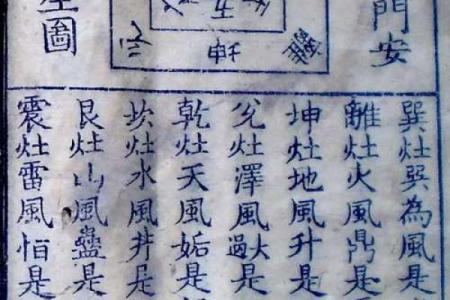 門安
圖
巽灶巽為風是
離灶火風鼎是
坤灶地風升是
兊灶澤風大過是
乾灶天風姤是
坎灶水風井是
艮灶山風蠱是
震灶雷風恒是